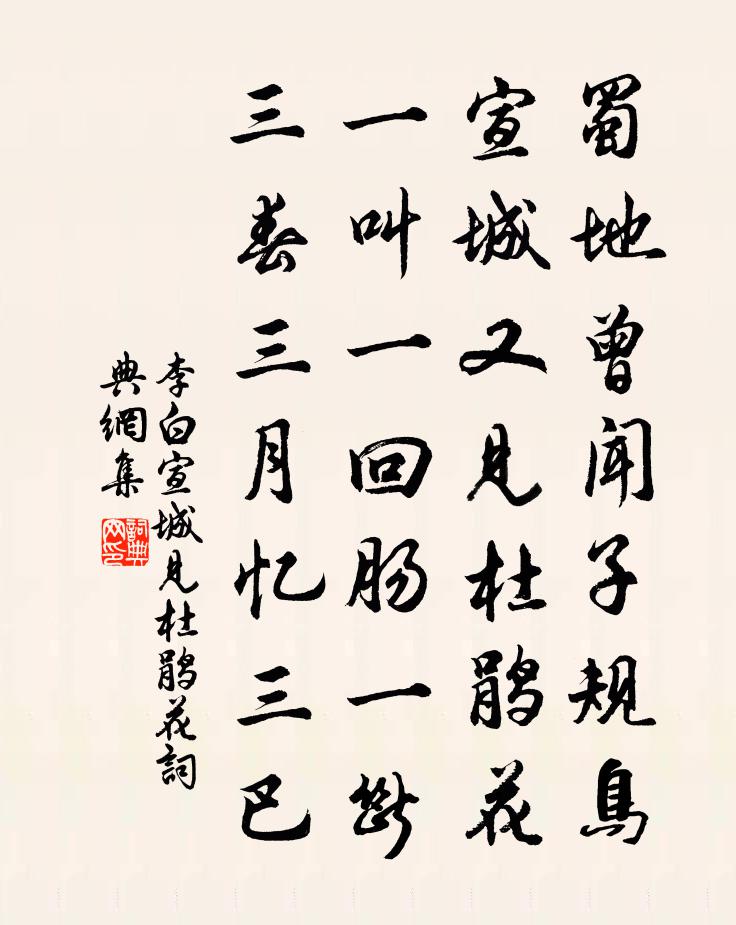 蜀地曾闻子规鸟
宣城又见杜鹃花
一叫一回肠一断
三春三月忆三巴
李白宣城见杜鹃花詞
典網集
詞典
网印